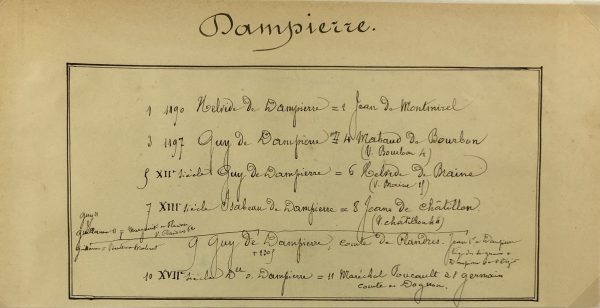 Dampierre.
1 1190 Helvide de Dampierre = 2 Jean de Montmirel
3 1197 Guy de Dampierre = 4 Mahaud de Bourbon
(V. Bourbon 4)
5 XIIe siècle Guy de Dampierre = 6 Helvide de Braine
7 XIIIe siècle Isabeau de Dampierre = 8 Jean de Châtillon.
9 Guy de Dampierre, comte de Flandres.
+ 1305
10 XVIIe siècle Dlle de Dampierre = 11 Maréchal Foucault de St germain
comte de Dognon.